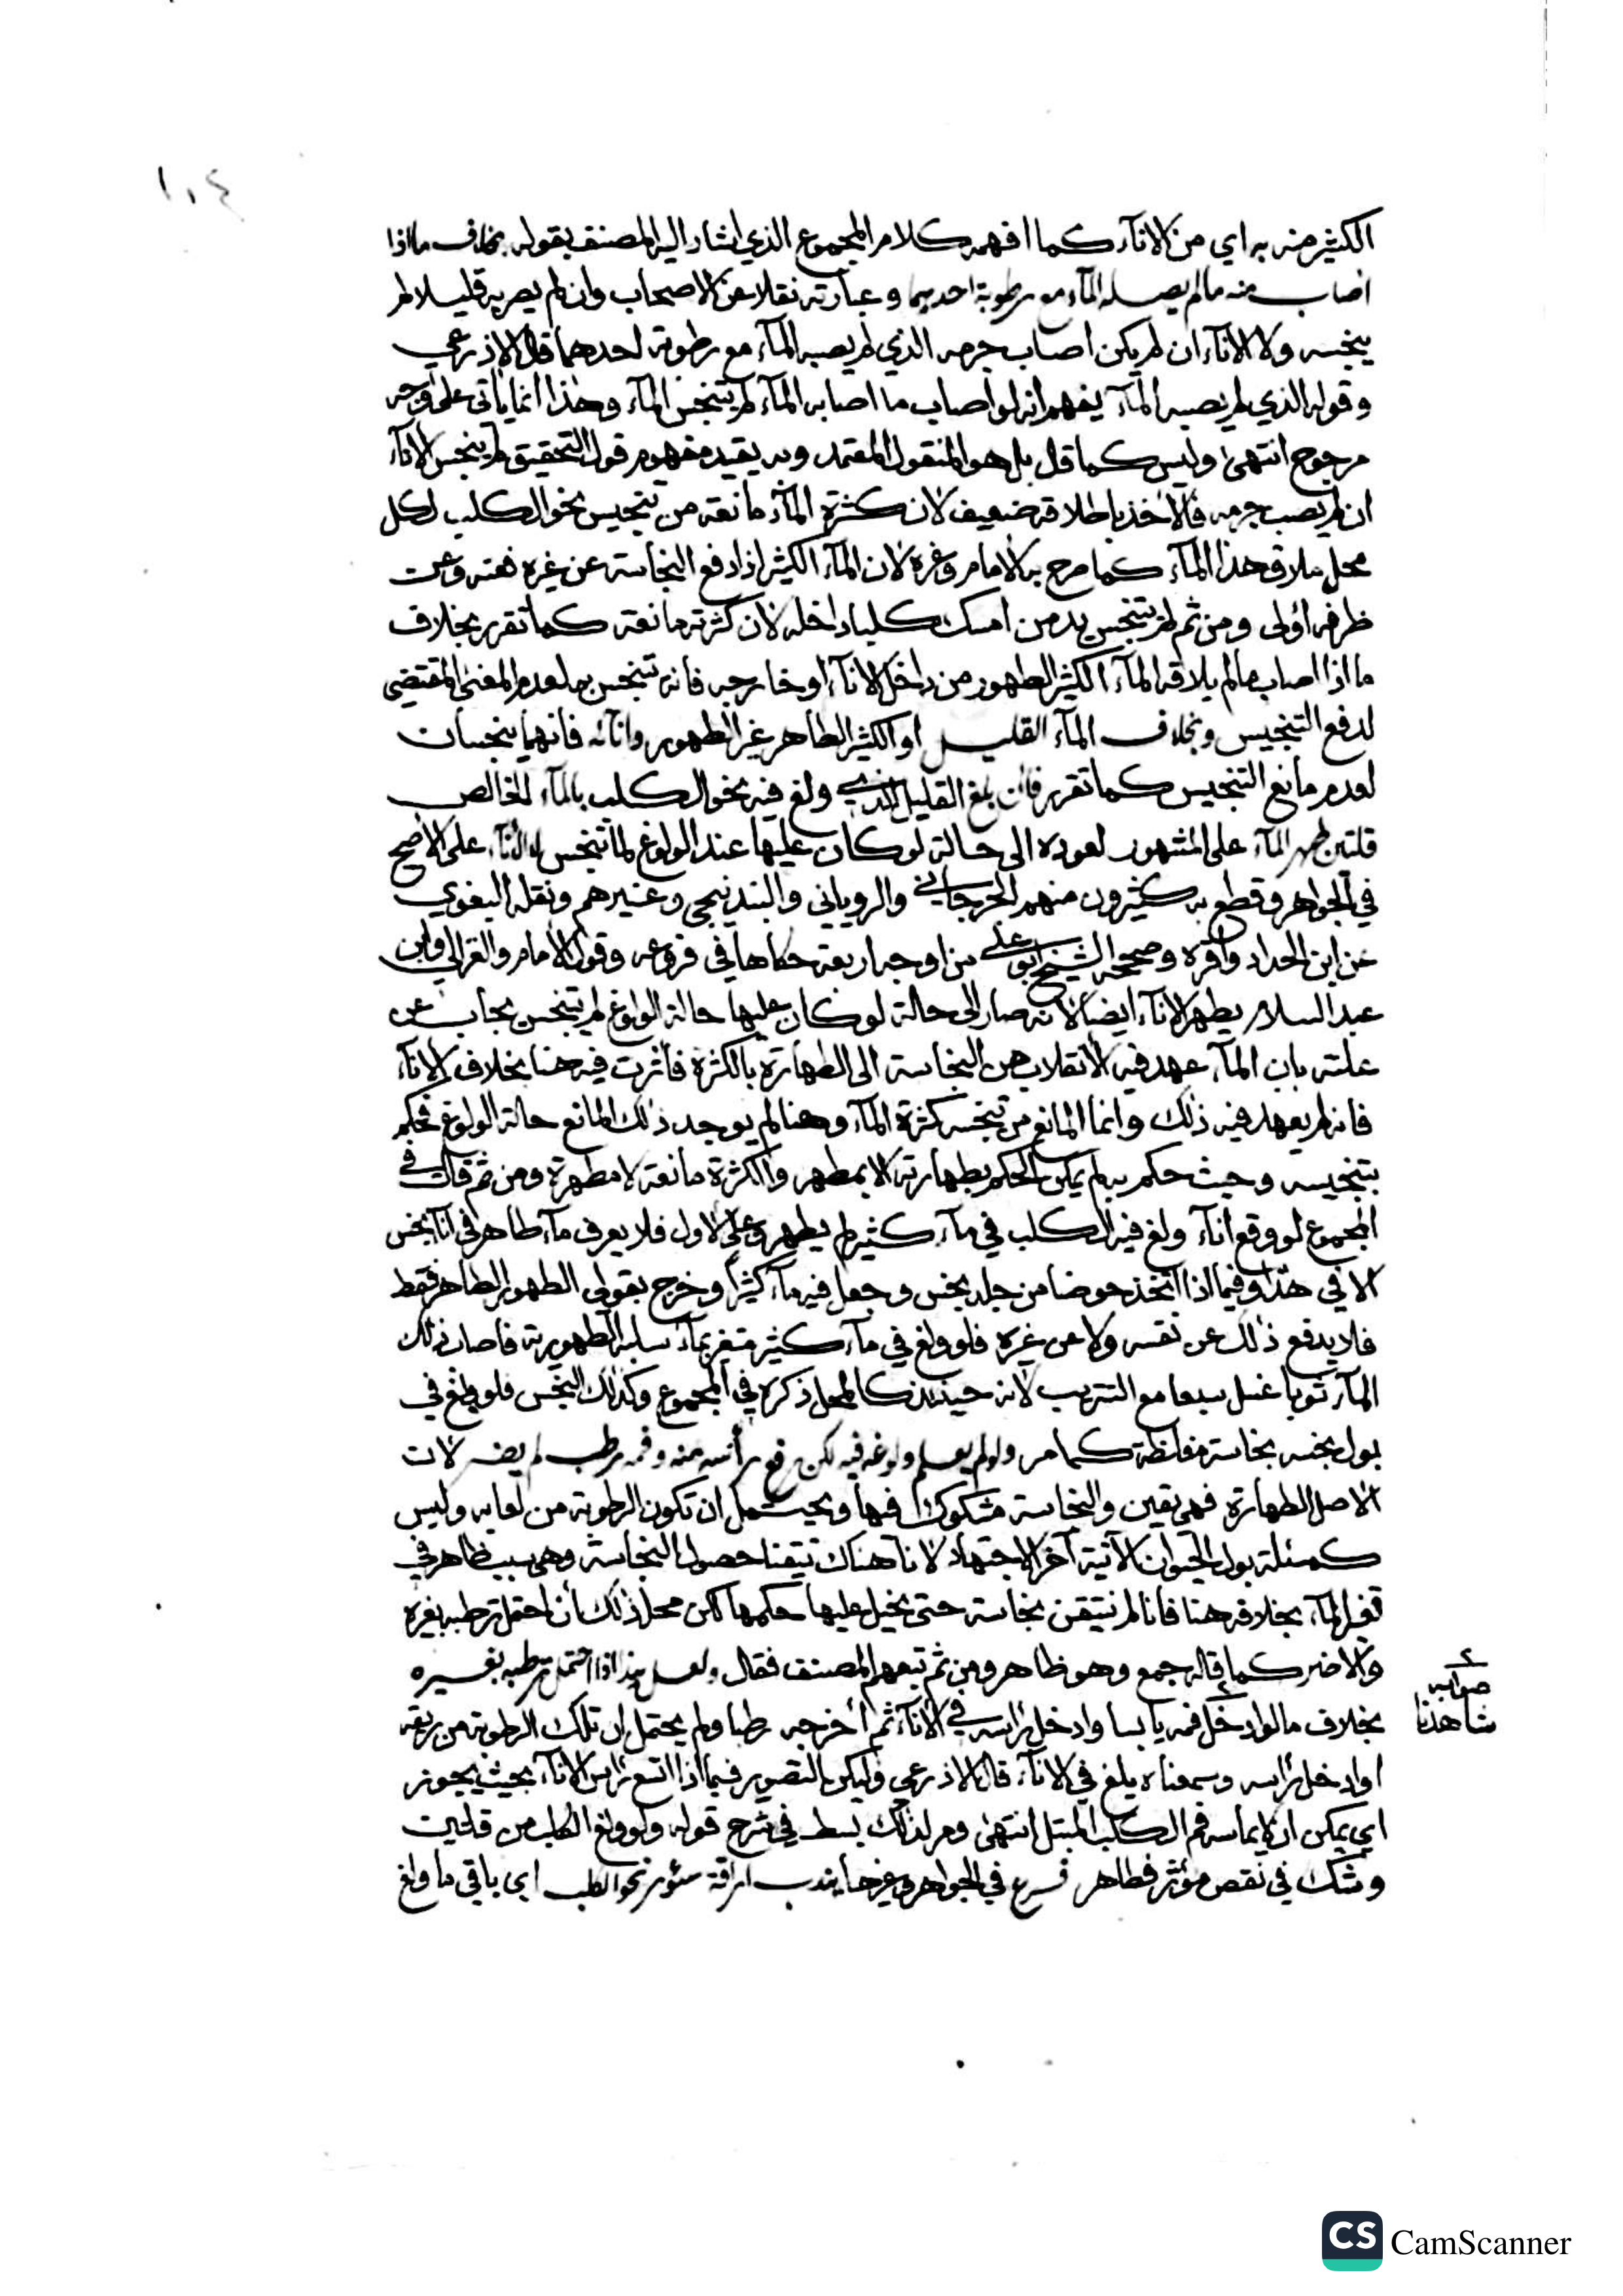 ١٠٤
الكثير منه به اي من الاناء كما افهمه كلام المجموع الذي اشار اليه المصنف بقوله بخلاف ما اذا
اصاب منه ما لم يصله الماء مع رطوبة احدهما وعبارته نقلا عن الاصحاب وان لم يصر به قليلا لم
ينجسه ولا الاناء ان لم يكن اصاب جرمه الذي لم يصبه الماء مع رطوبة احدهما قال الاذرعي
وقوله الذي لم يصبه الماء يفهم انه لو اصاب ما اصابه الماء لم يتنجس الماء وهذا انما ياتي على وجه
مرجوح انتهى وليس كما قال بل هو المنقول المعتمد وبه يقيد مفهوم قول التحقيق لم ينجس الاناء
ان لم يصب جرمه فالاخذ باطلاقه ضعيف لان كثرة الماء مانعة من تنجيس نحو الكلب لكل
محل ملاق هذا الماء كما صرح به الامام وغيره لان الماء الكثير اذا دفع النجاسة عن غيره فعنه وعن
ظرفه اولى ومن ثم لم يتنجس يد من امسك كلبا داخله لان كثرته مانعة كما تقرر بخلاف
ما اذا اصاب ما لم يلاقه الماء الكثير الطهور من داخل الاناء او خارجه فانه تنجس به لعدم المعنى المقتضي
لدفع التنجيس وبخلاف الماء القليل او الكثير الطاهر غير الطهور واناؤه فانهما ينجسان
لعدم مانع التنجيس كما تقرر فان بلغ القليل الذي ولغ فيه نحو الكلب بالماء الخالص
قلتين طهر الماء على المشهور لعوده الى حالة لو كان عليها عند الولوغ لما تنجس لا الاناء على الاصح
في الجواهر وقطع به كثيرون منهم الجرجاني والروياني والبندنيجي وغيرهم ونقله البغوي
عن ابن الحداد واقره وصححه الشيخ ابو علي من اوجه اربعة حكاها في فروعه وقول الامام والغزالي وابن
عبد السلام يطهر الاناء ايضا لانه صار الى حالة لو كان عليها حالة الولوغ لم يتنجس يجاب عن
علته بان الماء عهد فيه الانقلاب من النجاسة الى الطهارة بالكثرة فاثرت فيه هنا بخلاف الاناء
فانه لم يعهد فيه ذلك وانما المانع من تنجسه كثرة الماء وهنا لم يوجد ذلك المانع حالة الولوغ فحكم
بتنجيسه وحيث حكم به لم يمكن الحكم بطهارته الا بمطهر والكثرة مانعة لا مطهرة ومن ثم قال في
المجموع لو وقع اناء ولغ فيه الكلب في ماء كثير لم يطهر وعلى الاول فلا يعرف ماء طاهر في اناء نجس
الا في هذا وفيما اذا اتخذ حوضا من جلد نجس وجعل فيه ماء كثيرا وخرج بقولي الطهور الطاهر فقط
فلا يدفع ذلك عن نفسه ولا عن غيره فلو ولغ في ماء كثير متغير بماء سلبه الطهورية فاصاب ذلك
الماء ثوبا غسل سبعا مع التتريب لانه حينئذ كالمحل ذكره في المجموع وكذلك النجس فلو ولغ في
بول نجسه نجاسة مغلظة كما مر ولو لم يعلم ولوغه فيه لكن رفع رأسه منه وفمه رطب لم يضر لان
الاصل الطهارة فهي يقين والنجاسة مشكوك فيها ويحتمل ان تكون الرطوبة من لعابه وليس
كمسئلة بول الحيوان الآتية آخر الاجتهاد لانا هناك تيقنا حصول النجاسة وهي سبب ظاهر في
تغير الماء بخلافه هنا فانا لم نتيقن نجاسة حتى يحيل عليها حكمها لكن محل ذلك ان احتمل ترطبه بغيره
والا ضر كما قاله جمع وهو ظاهر ومن ثم تبعهم المصنف فقال ولعل هذا اذا احتمل ترطبه بغيره
بخلاف ما لو ادخل فمه يابسا وادخل راسه في الاناء ثم اخرجه رطبا ولم يحتمل ان تلك الرطوبة من ريقه
او ادخل راسه وسمعناه يلغ في الاناء قال الاذرعي وليكن التصوير فيما اذا اتسع راس الاناء بحيث يجوز
اي يمكن ان لا يماسه فم الكلب المبتل انتهى ومر لذلك بسط في شرح قوله ولو ولغ الكلب من قلتين
وشك في نقص مؤثر فطاهر فرع في الجواهر وغيرها يندب اراقة سؤر نحو الكلب اي باقي ما ولغ
صوابه
شاهدنا
CS CamScanner